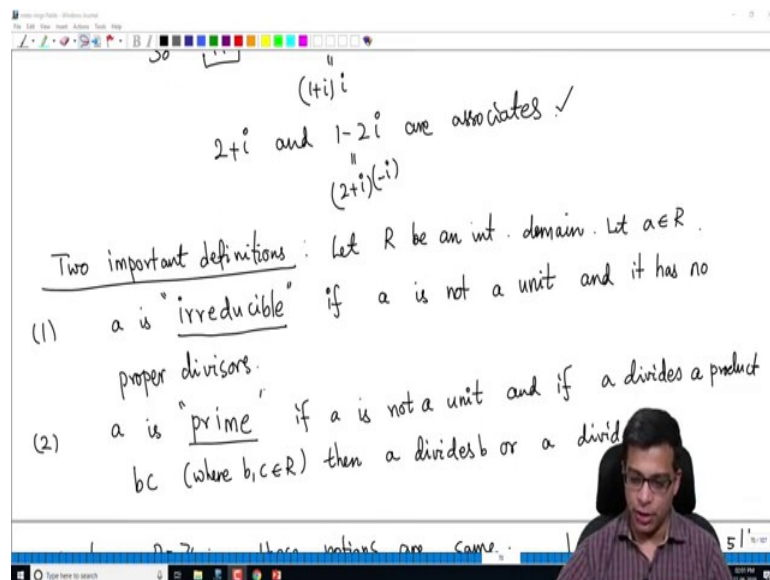 So
11
(1+i)i
2+i and 1-2i are associates. ✓
11
(2+i)(-i)
Two important definitions : Let R be an int. domain. Let a ∈ R.
(1) a is "irreducible" if a is not a unit and it has no
proper divisors.
(2) a is "prime" if a is not a unit and if a divides a product
bc (where b, c ∈ R) then a divides b or a
notions are same.
Type here to search